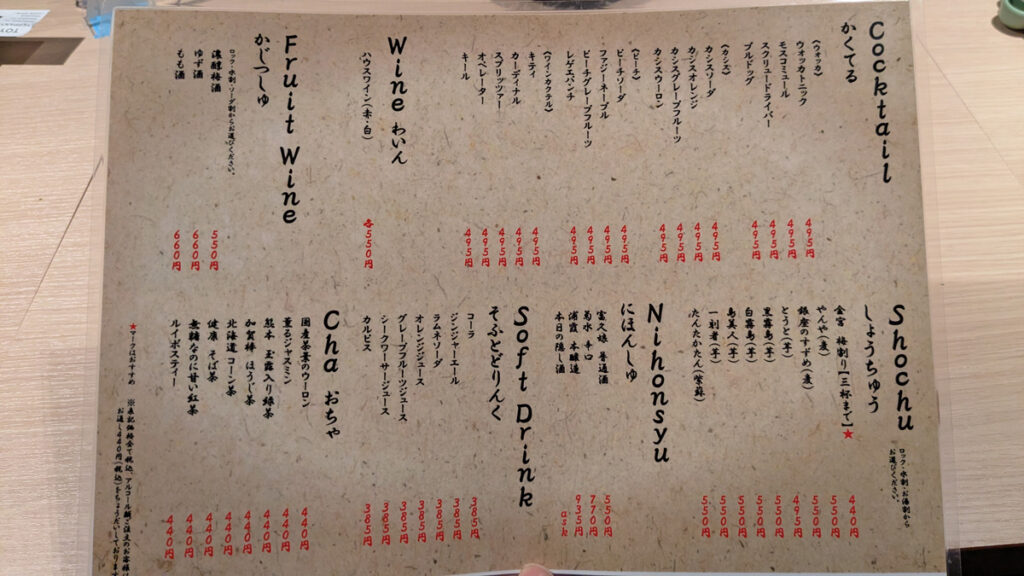 Cocktail
かくてる
(ウォッカ)
ウォッカトニック 495円
モスコミュール 495円
スクリュードライバー 495円
ブルドッグ 495円
(カシス)
カシスソーダ 495円
カシスオレンジ 495円
カシスグレープフルーツ 495円
カシスウーロン 495円
(ピーチ)
ピーチソーダ 495円
ファジーネーブル 495円
ピーチグレープフルーツ 495円
レゲエパンチ 495円
(ワインカクテル)
キティ 495円
カーディナル 495円
スプリッツァー 495円
オペレーター 495円
キール 495円
Wine わいん
ハウスワイン(赤・白) 各550円
Fruit Wine
かじつしゅ
ロック・水割・ソーダ割からお選びください。
濃醇梅酒 550円
ゆず酒 660円
もも酒 660円
Shochu
しょうちゅう
ロック・水割・お湯割から
お選びください。
金宮 梅割り【三杯まで】★ 440円
やんやん(麦) 550円
銀座のすずめ(麦) 550円
とうと(芋) 495円
黒霧島(芋) 550円
白霧島(芋) 550円
島美人(芋) 550円
一刻者(芋) 550円
たんたかたん(紫蘇) 550円
Nihonsyu
にほんしゅ
富久娘 普通酒 550円
菊水 辛口 770円
浦霞 本醸造 935円
本日の隠し酒 ask
Soft Drink
そふとどりんく
コーラ 385円
ジンジャーエール 385円
ラムネソーダ 385円
オレンジジュース 385円
グレープフルーツジュース 385円
シークワーサージュース 385円
カルピス 385円
Cha おちゃ
国産茶葉のウーロン 440円
薫るジャスミン 440円
熊本 玉露入り緑茶 440円
加賀棒 ほうじ茶 440円
北海道 コーン茶 440円
健康 そば茶 440円
無糖なのに甘い紅茶 440円
ルイボスティー 440円
★マークはおすすめ
※表記価格全て税込、アルコール類ご注文のお客様は
お通し440円(税込)をちょうだいしております